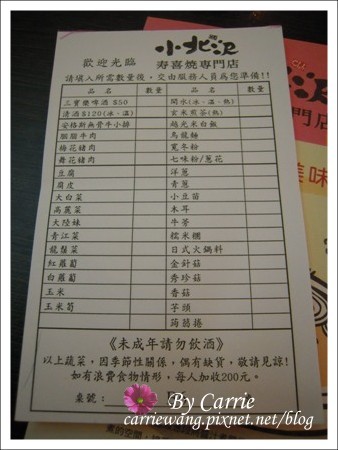 小北沢
歡迎光臨 寿喜燒專門店
請填入所需數量後，交由服務人員為您準備!!
品名 數量 品名 數量
三寶樂啤酒$50 開水(冰、溫、熱)
清酒$120(冰、溫) 玄米煎茶(熱)
安格斯無骨牛小排 越光米白飯
胭脂牛肉 烏龍麵
梅花豬肉 寬冬粉
舞花豬肉 七味粉/蔥花
豆腐 洋蔥
腐皮 青蔥
大白菜 小豆苗
高麗菜 木耳
大陸妹 牛蒡
青江菜 糯米椒
龍鬚菜 日式火鍋料
紅蘿蔔 金針菇
白蘿蔔 秀珍菇
玉米 香菇
玉米筍 芋頭
蒟蒻捲
《未成年請勿飲酒》
以上蔬菜，因季節性關係，偶有缺貨，敬請見諒!
如有浪費食物情形，每人加收200元。
桌號：
門店
美味
By Carrie
carriewang.pixnet.net/blog